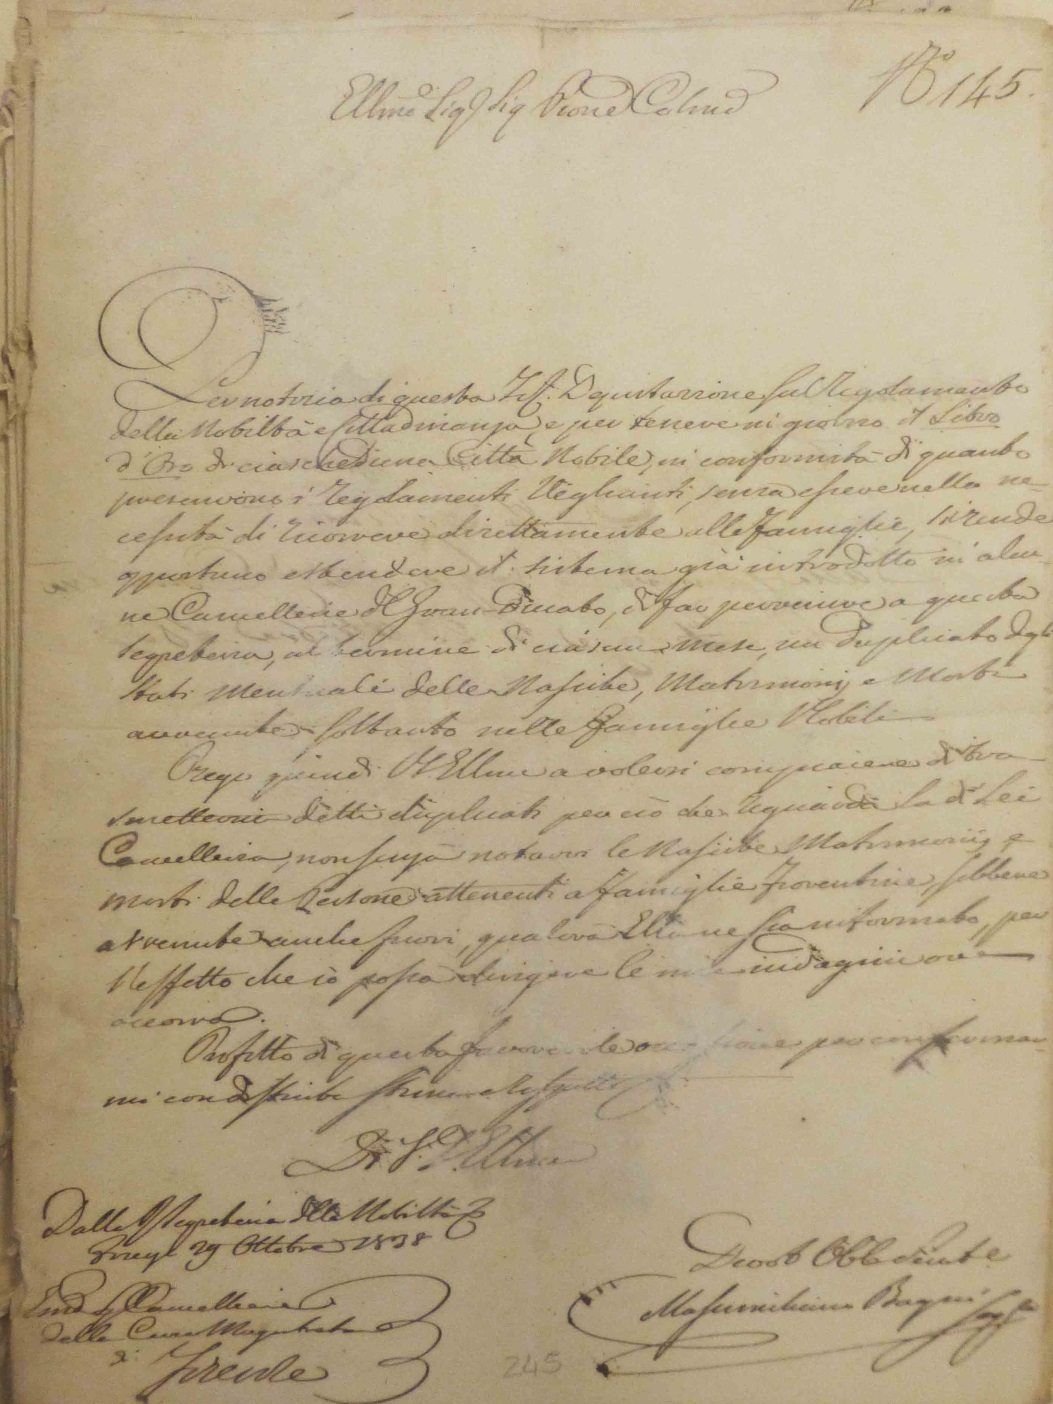 N° 145.
Ellmo Sig. Sig. Prone Colmo
La memoria di questa Deputazione sul Regolamento
della Nobiltà e Cittadinanza, e per tenere in giorno il Libro
d'Oro di ciascheduna Città Nobile, in conformità di quanto
prescrivono i Regolamenti Veglianti, senza essere nella ne-
cessità di ricorrere direttamente alle Famiglie, si rende
opportuno estendere il sistema già introdotto in alcu-
ne Cancellerie del Gran-Ducato, di far pervenire a questa
Segreteria, al termine di ciascun mese, un Duplicato degli
Stati Mensuali delle Nascite, Matrimonij, e Morti
avvenute soltanto nelle Famiglie Nobili
Prego quindi VS Ellma a volersi compiacere di tra
smettermi detti duplicati per ciò che riguarda la di Lei
Cancelleria, non senza notarvi le Nascite Matrimonij, e
morti delle Persone attenenti a Famiglie Fiorentine, sebbene
avvenute anche fuori, qualora Ella ne sia informata, per
l'effetto che io possa dirigere le mie indagini ove
occorra.
Profitto di questa favorevole occasione per conferma-
mi con distinta stima e rispetto
Di V. S. Ellma
Dalla Segreteria della Nobiltà
29 Ottobre 1838
Cancelliere
della Magistrato
di
Firenze
Devot Obbediente
Massimiliano Bagni
245